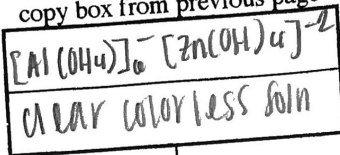 copy box from previous page
[Al(OH4)]⁻ [Zn(OH)4]⁻²
clear colorless soln